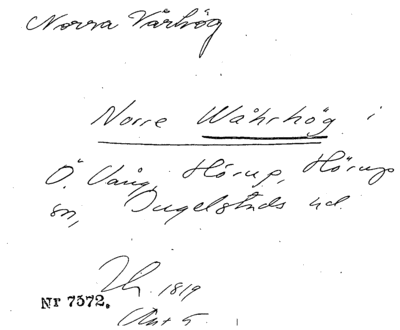 Norra Vårhög
Norre Wåhrhög i
Ö. Vång, Hörup, Hörups
sn, Ingelstads hd.
1819
Nr 7372.